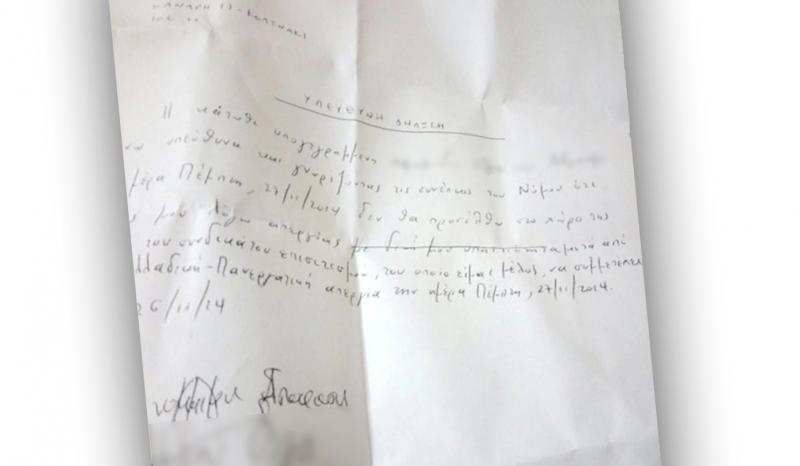 ΚΟΛΩΝΑΚΙ
ΥΠΕΥΘΥΝΗ ΔΗΛΩΣΗ
Η κάτωθι υπογεγραμμένη
υπεύθυνα και γνωρίζοντας τις συνέπειες του Νόμου ότι
μέρα Πέμπτη, 27/11/2014 δεν θα προσέλθω στο χώρο της
μου λόγω απεργίας μετά από
του συνδικάτου επισιτισμού, του οποίου είμαι μέλος, να συμμετέχει
λλαδική-Πανεργατική απεργία την ημέρα Πέμπτη, 27/11/2014.
26/11/14